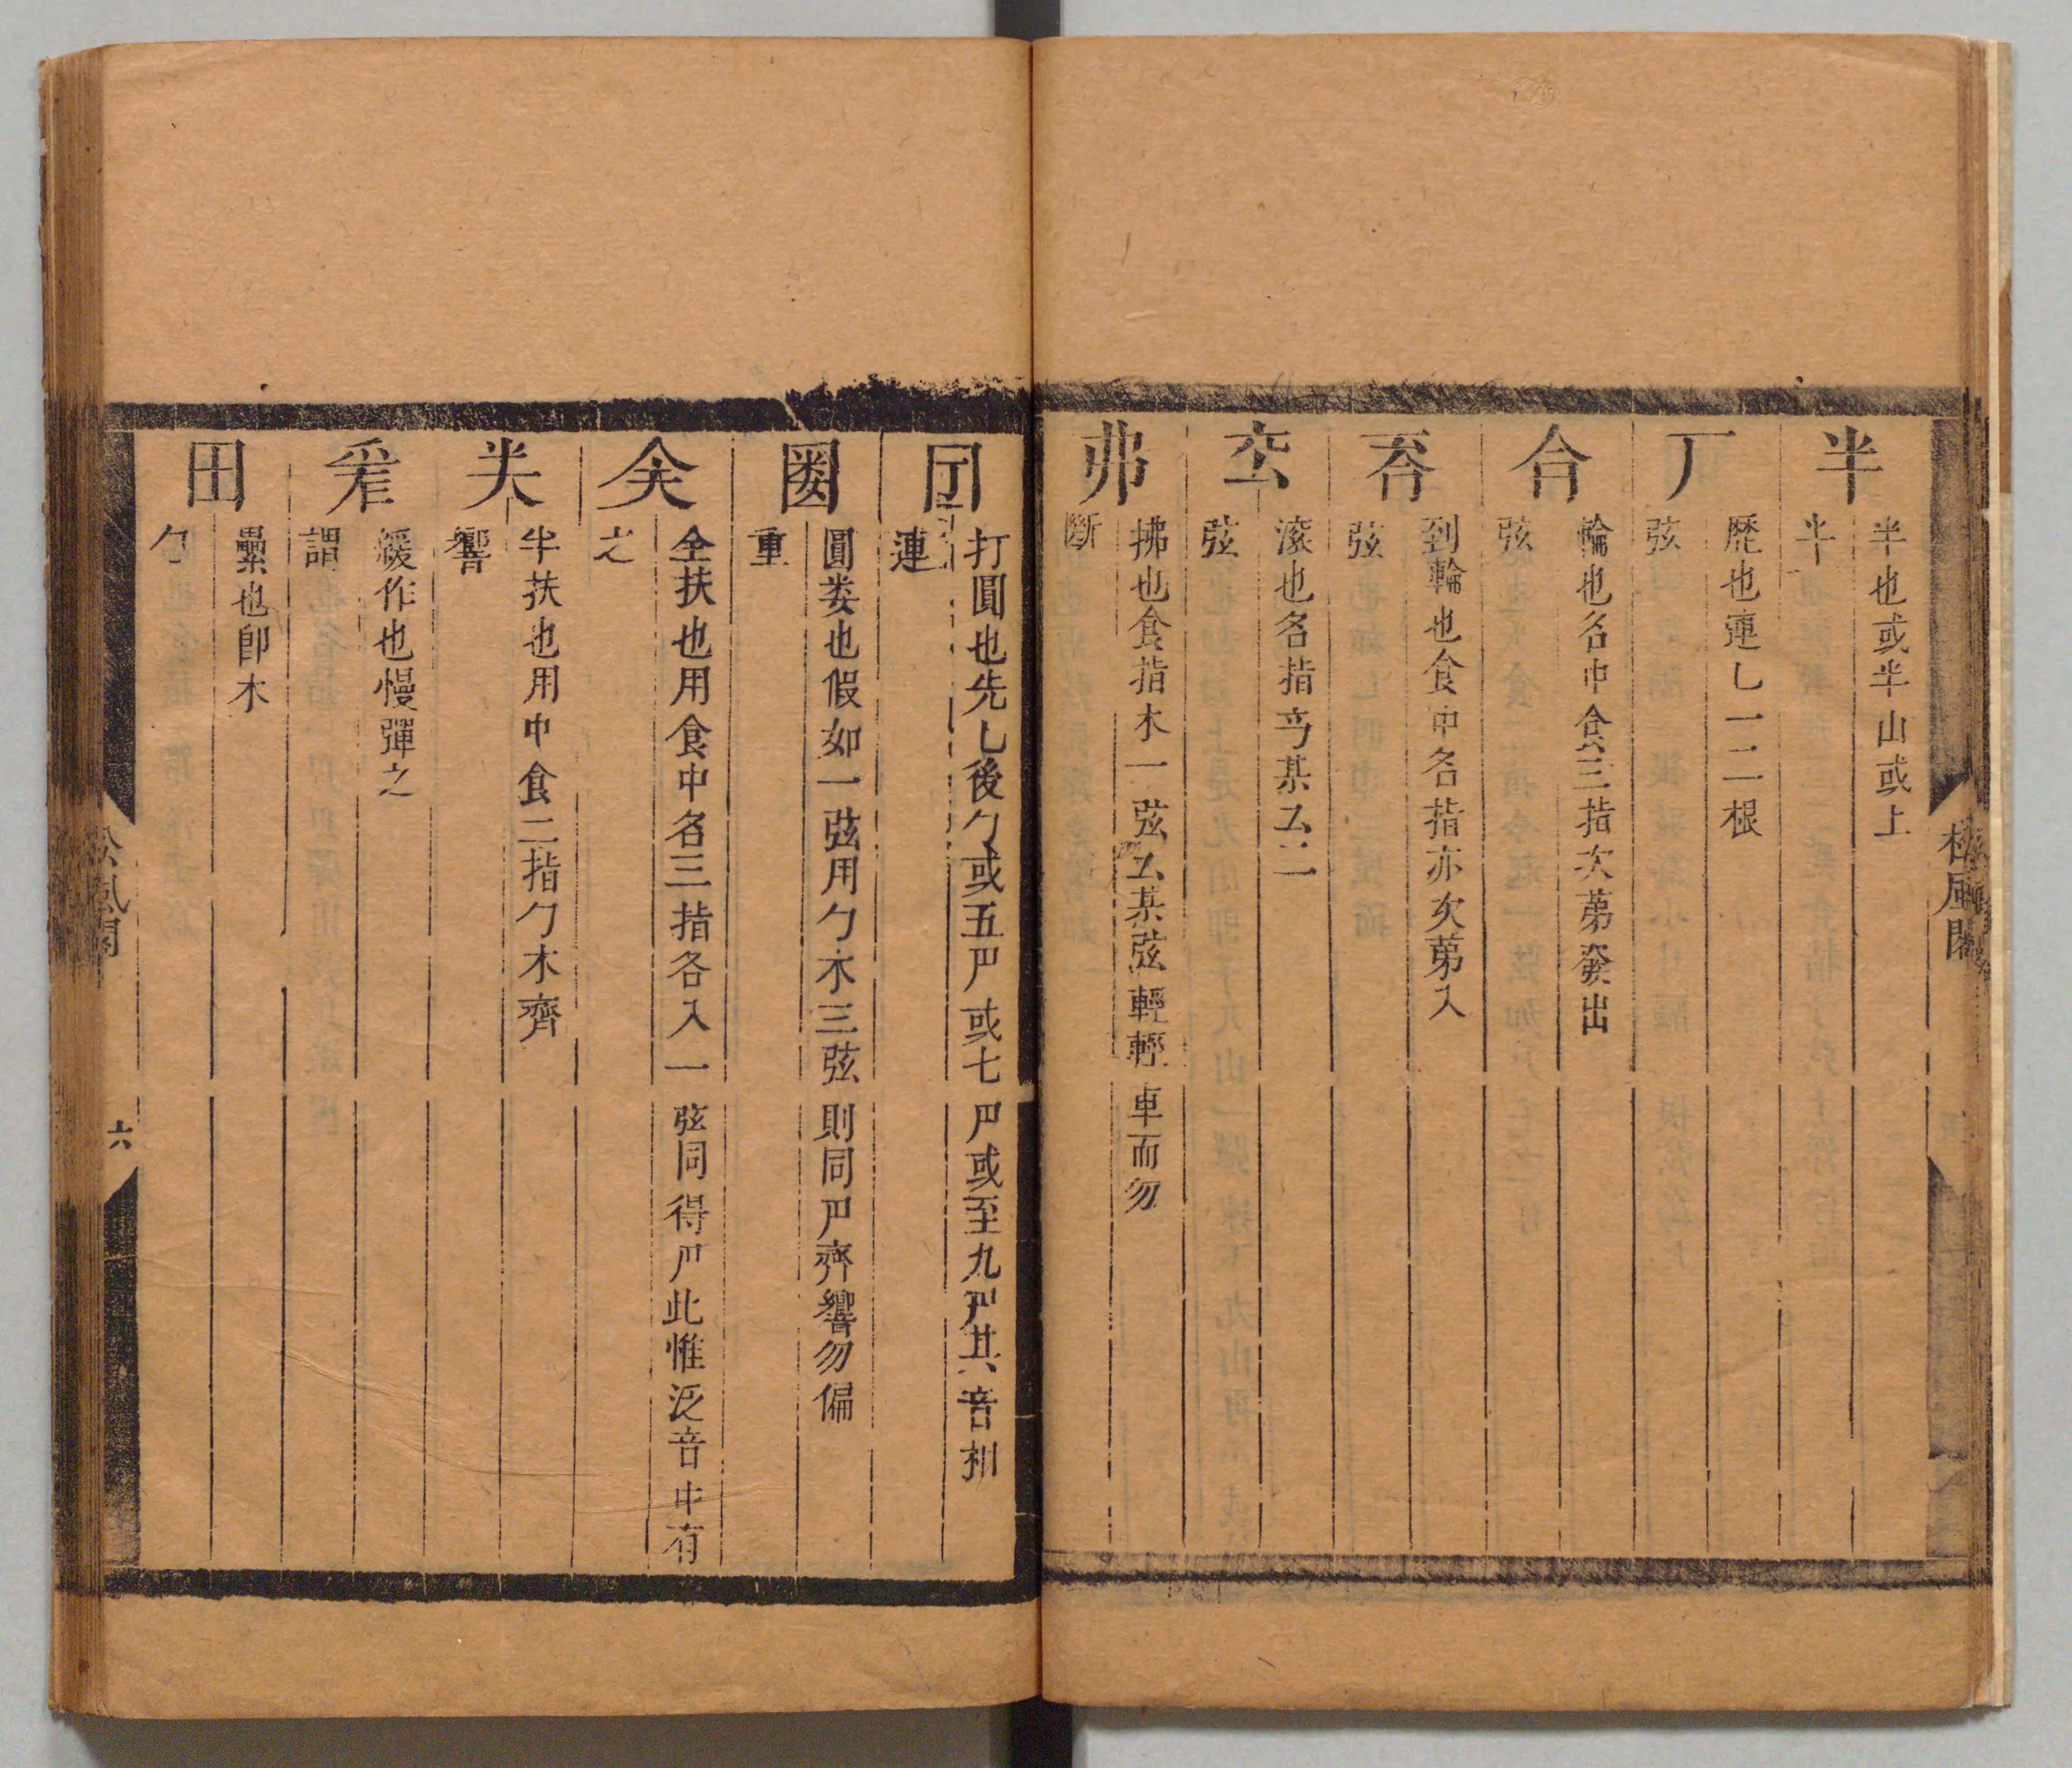 半
半也或半山或上
半
丆
歷也連乚一二根
弦
合
輪也名中食三指次第發出
弦
到輪也食中名指亦次第入
弦
滾也名指㐄某厶二
弦
弗
拂也食指木一弦厶某弦輕輕車而勿
斷
打圓也先乚後勹或五尸或七尸或至九尸其音相
連
圓婁也假如一弦用勹木三弦則同尸齊響勿偏
重
全扶也用食中名三指各入一弦同得尸此惟泛音中有
之
半扶也用中食二指勹木齊
響
緩作也慢彈之
謂
田
壘也卽木
勹
松風閣
六
松風閣